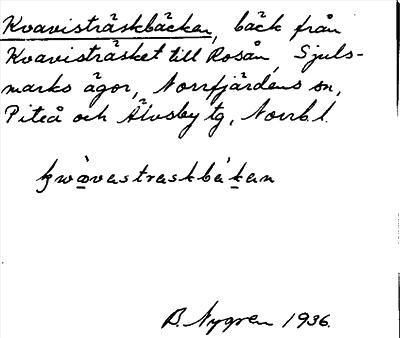 Kvavisträskbäcken, bäck från
Kvavisträsket till Rosån, Sjuls-
marks ägor, Norrfjärdens sn,
Piteå och Älvsby tg, Norrb.l.
B. Nygren 1936.